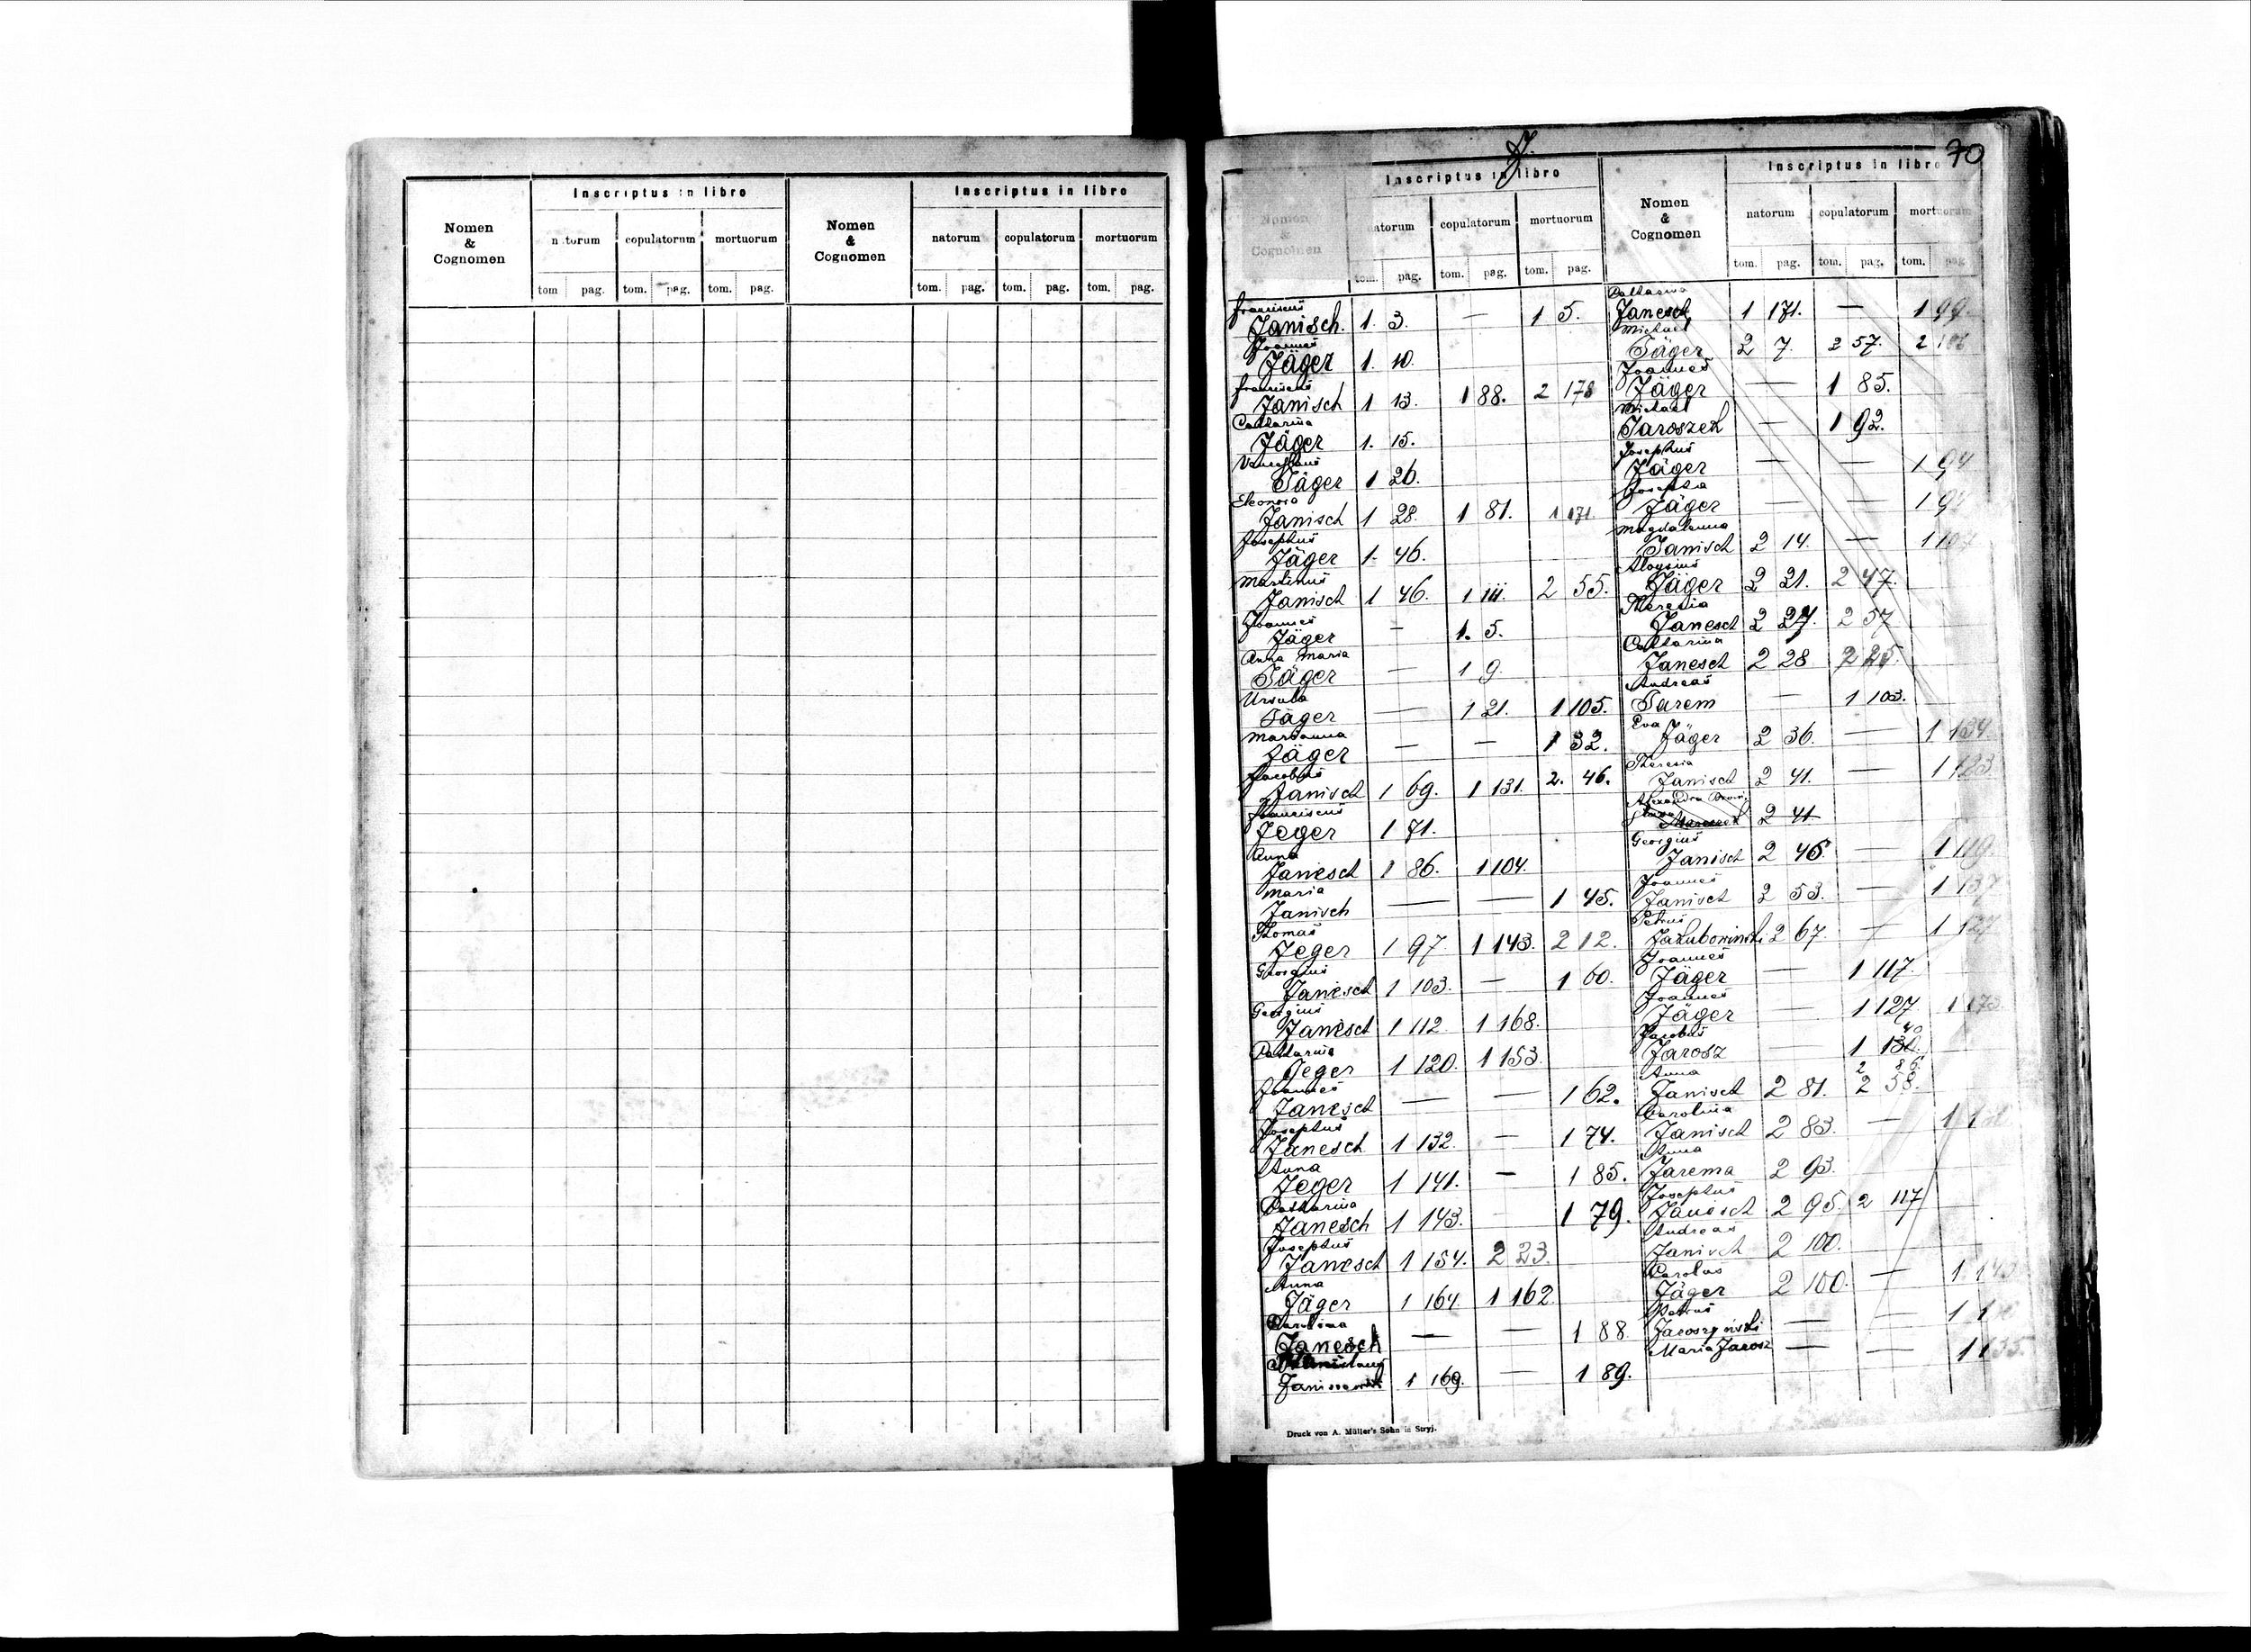 Inscriptus in libro
Inscriptus in libro
Nomen & Cognomen
natorum copulatorum mortuorum
Nomen & Cognomen
natorum copulatorum mortuorum
tom. pag. tom. pag. tom. pag.
tom. pag. tom. pag. tom. pag.
J.
70
Inscriptus in libro
Inscriptus in libro
Nomen & Cognomen
natorum copulatorum mortuorum
Nomen & Cognomen
natorum copulatorum mortuorum
tom. pag. tom. pag. tom. pag.
tom. pag. tom. pag. tom. pag.
Franciscus
Janisch. 1. 3. — 1 5.
Joannes
Jäger 1. 10.
Franciscus
Janisch 1 13. 1 88. 2 178
Catharina
Jäger 1. 15.
Jäger 1 26.
Eleonora
Janisch 1 28. 1 81. 1 171
Josephus
Jäger 1. 46.
Martinus
Janisch 1 46. 1 111. 2 55.
Joannes
Jäger — 1. 5.
Anna Maria
Jäger — 1 9.
Ursula
Jäger — 1 21. 1 105.
Marianna
Jäger — — 1 32.
Jacobus
Janisch 1 69. 1 131. 2. 46.
Franciscus
Jeger 1 71.
Anna
Janesch 1 86. 1 104.
Maria
Janisch — — 1 45.
Thomas
Jeger 1 97. 1 143. 2 12.
Georgius
Janesch 1 103. — 1 60.
Georgius
Janesch 1 112. 1 168.
Catharina
Jeger 1 120. 1 153.
Joannes
Janesch — — 1 62.
Josephus
Janesch 1 132. — 1 74.
Anna
Jeger 1 141. — 1 85.
Catharina
Janesch 1 143. 1 79.
Josephus
Janesch 1 154. 2 23.
Anna
Jäger 1 164. 1 162
Carolina
Janesch — — 1 88.
1 169. — 1 89.
Catharina
Janesch 1 171. — 1 99.
Michael
Jäger 2 7. 2 57. 2
Joannes
Jäger — 1 85.
Michael
Jaroszek — 1 92.
Josephus
Jäger — — 1 94
Josepha
Jäger — — 1
Magdalenna
Janisch 2 14. — 1 107
Aloysius
Jäger 2 21. 2 47.
Theresia
Janesch 2 27. 2 57
Catharina
Janesch 2 28 2 25.
Andreas
Jarem — 1 103.
Eva
Jäger 2 36. — 1 134.
Theresia
Janisch 2 41. — 1 123.
2 41
Georgius
Janisch 2 46. — 1 119
Joannes
Janisch 2 53. — 1 137
Petrus
Jakubowinski 2 67. — 1
Joannes
Jäger — 1 117.
Joannes
Jäger — 1 127. 1 173.
Jacobus 40
Jarosz — 1 130.
Anna 2 86.
Janisch 2 81. 2 58.
Carolina
Janisch 2 83. — 1
Anna
Jarema 2 93.
Josephus
Janesch 2 95. 2 117
Andreas
Janisch 2 100.
Carolus
Jäger 2 100. — 1
Petrus
Jaroszynski — — 1
Maria Jarosz — — 1 135.
Druck von A. Müller's Sohn in Stryj.